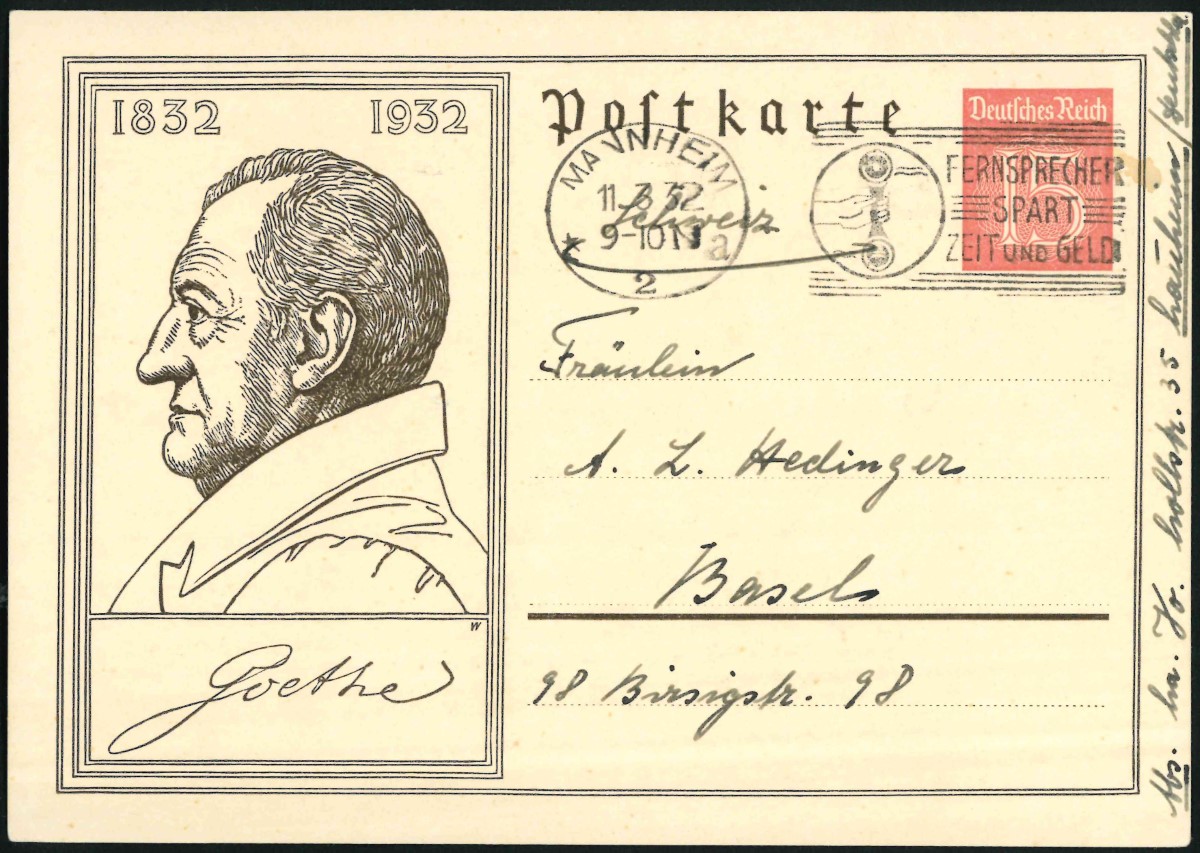 1832 1932
Goethe
W
Postkarte
Deutsches Reich
15
MANNHEIM
11.3.32
9-10 N
a
2
FERNSPRECHER
SPART
ZEIT UND GELD
Schweiz
Fräulein
A. L. Hedinger
Basel
98 Birsigstr. 98
Abs. 35